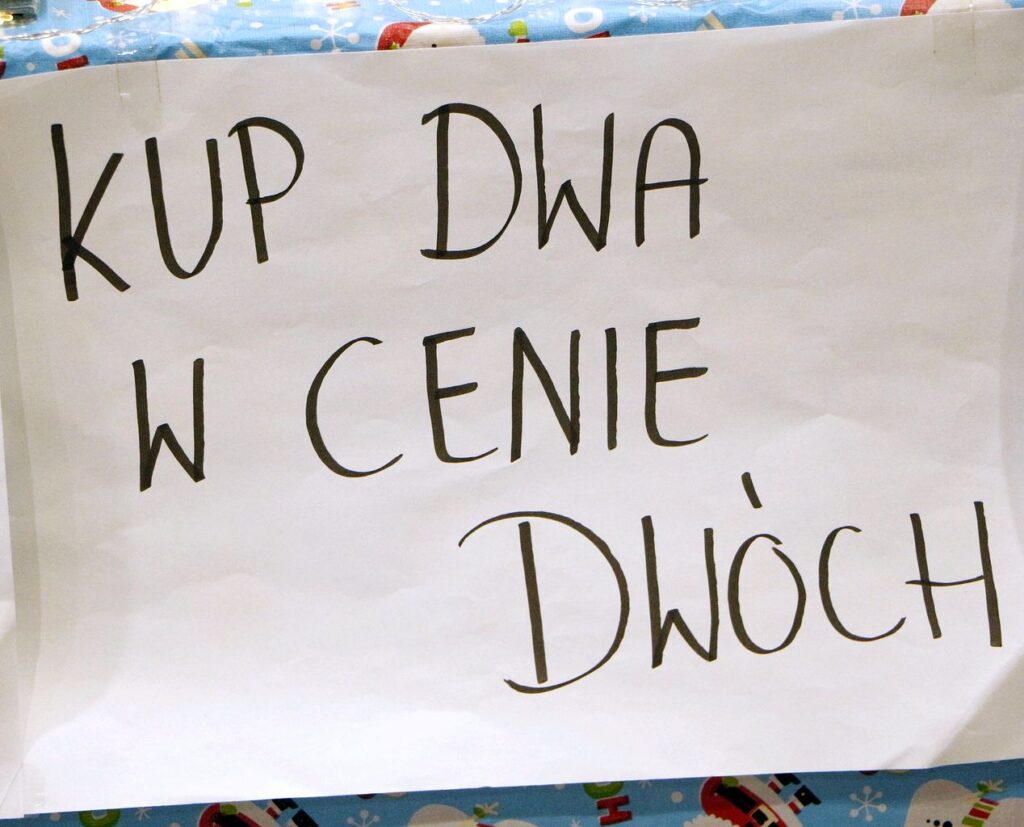 KUP DWA
W CENIE
DWÓCH